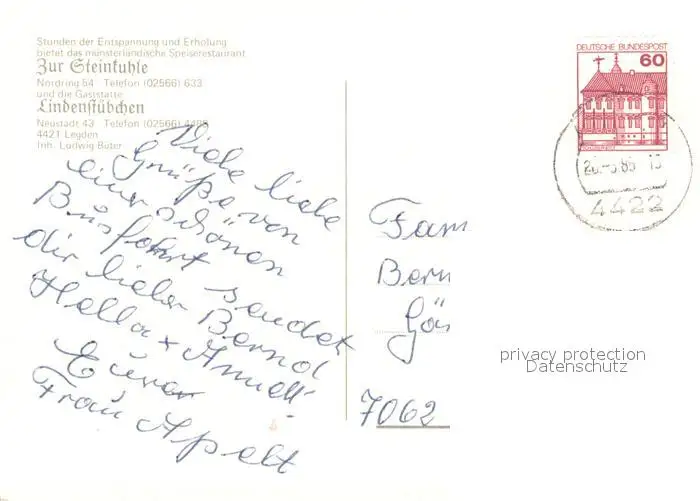 Stunden der Entspannung und Erholung
bietet das münsterländische Speiserestaurant
Zur Steinkuhle
Nordring 54 Telefon (02566) 633
und die Gaststätte
Lindenstübchen
Neustadt 43 Telefon (02566) 4488
4421 Legden
Inh. Ludwig Büter
Viele liebe
Grüße von
einer schönen
Busfahrt sendet
dir lieber Bernd
Hella + Annett!
Eurer
Frau Apelt
DEUTSCHE BUNDESPOST
60
4422
Fam
Bern
Gös
7062
privacy protection
Datenschutz